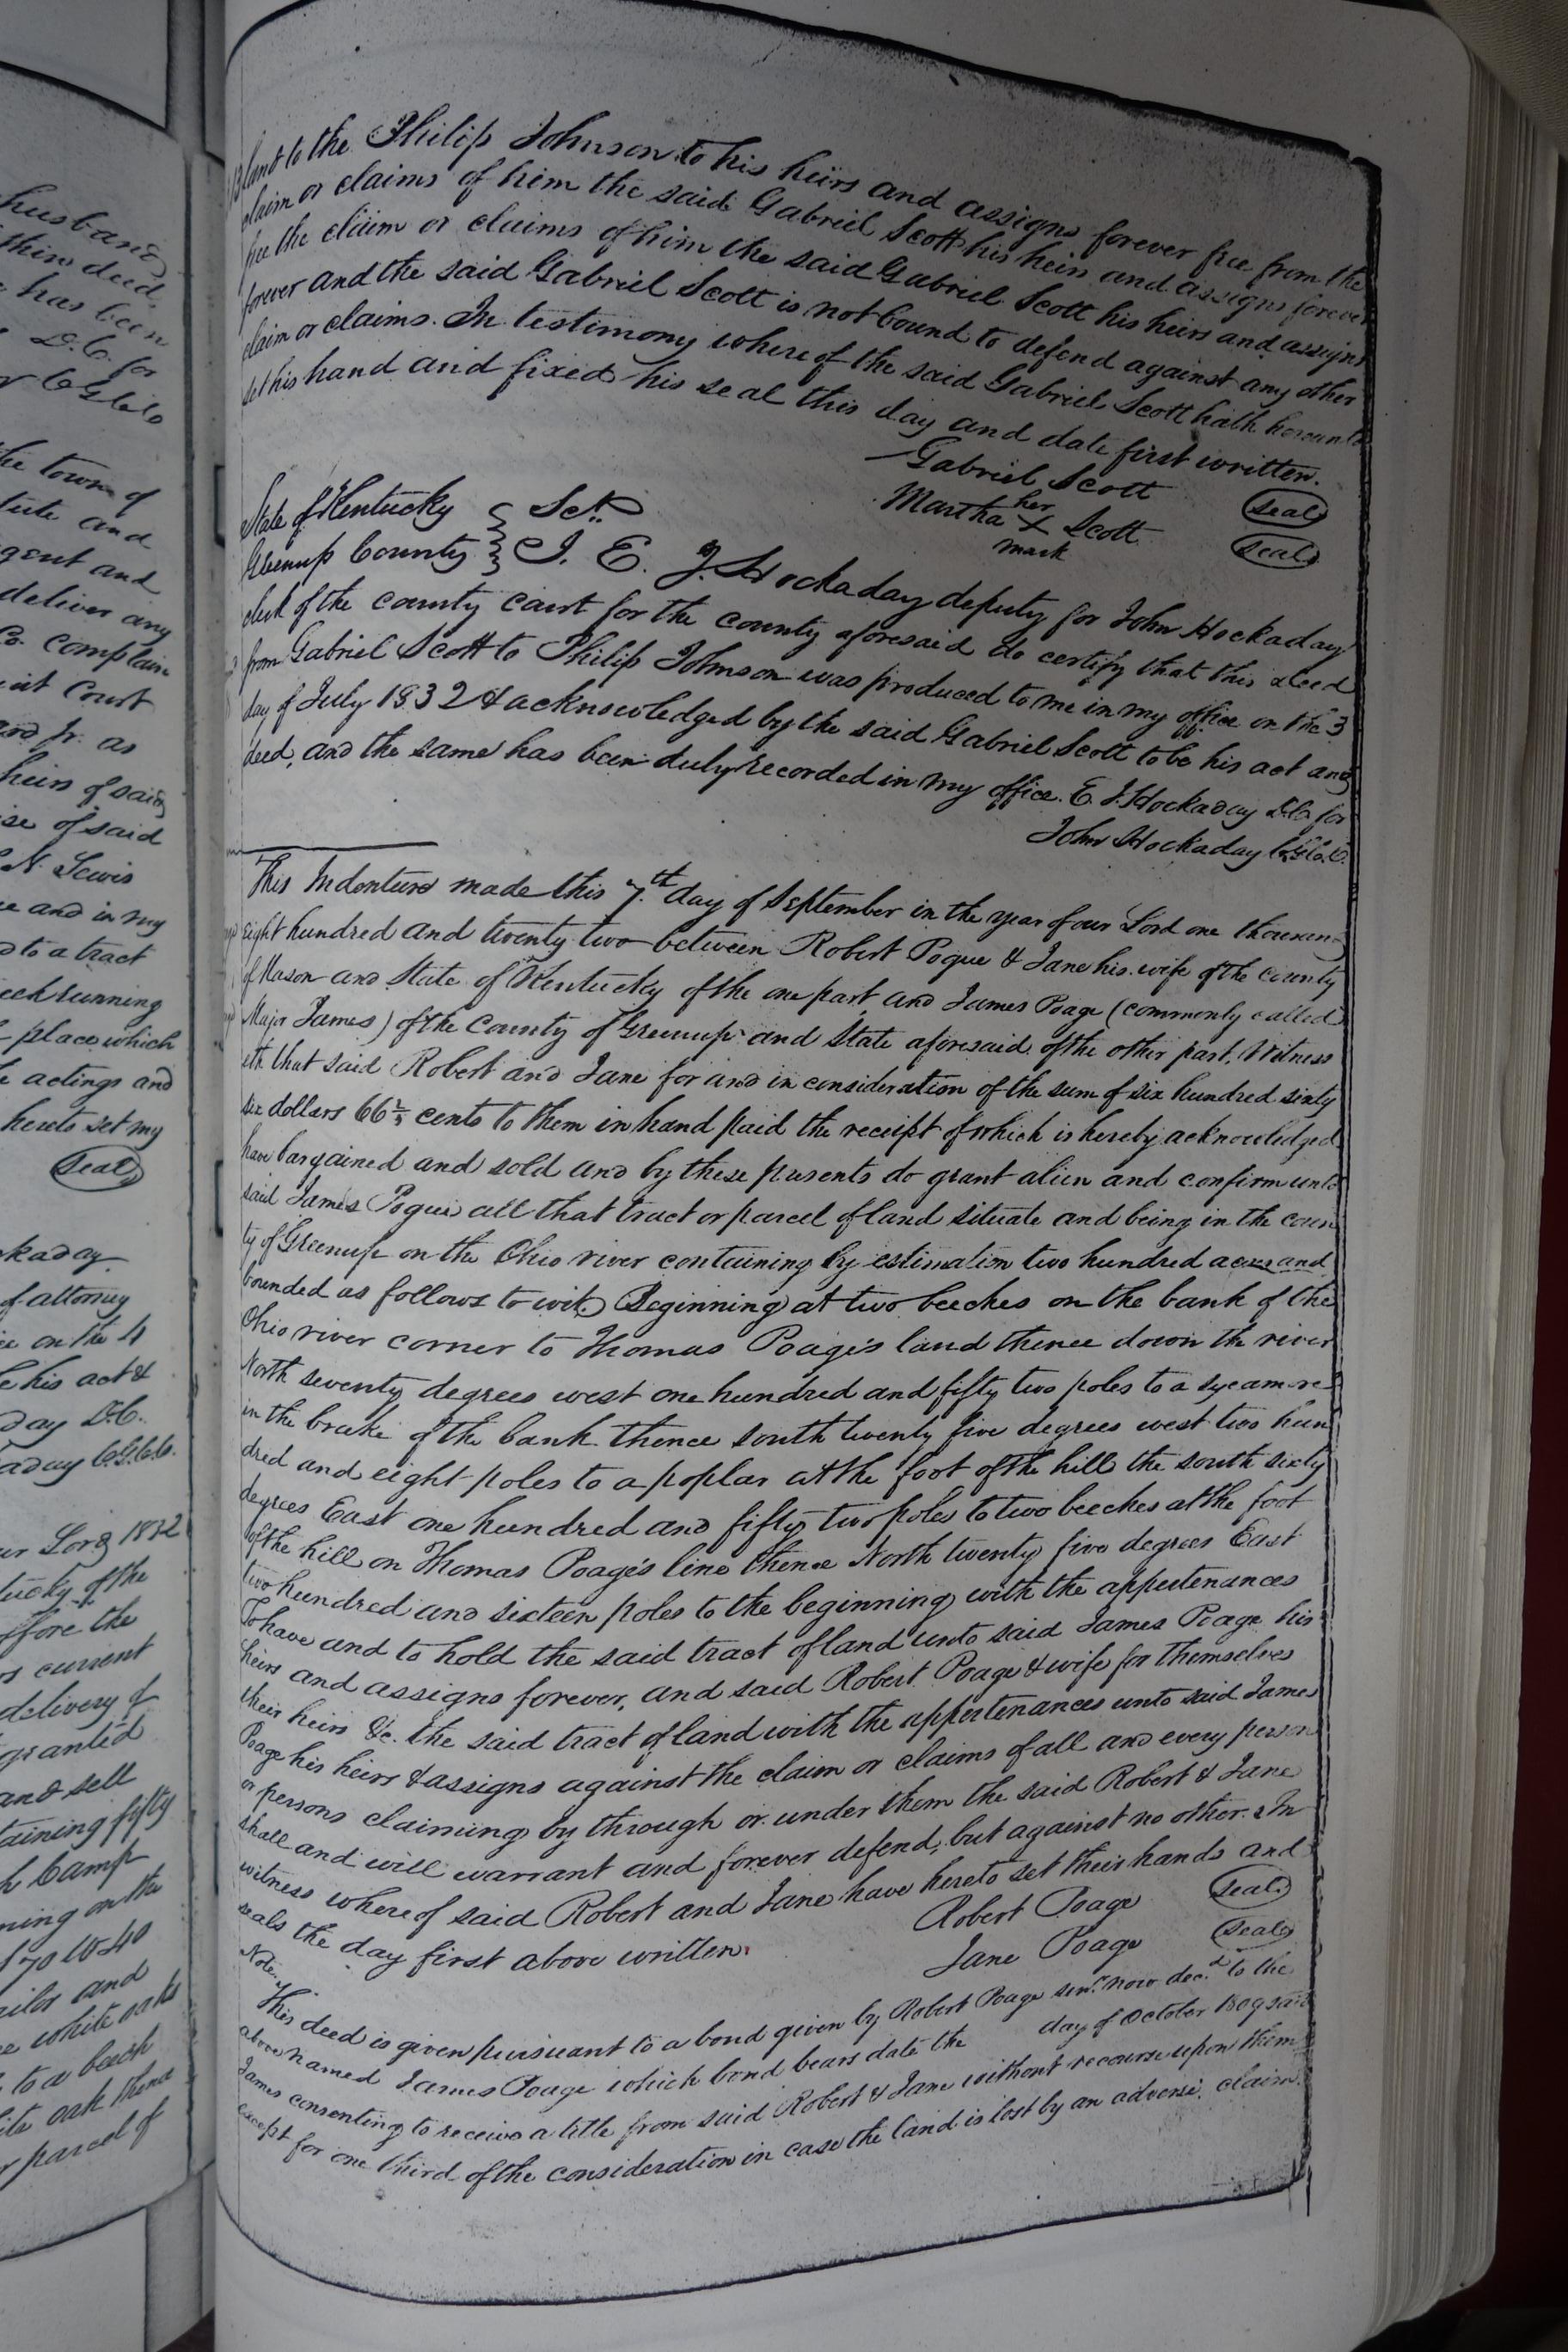 husband
thin deed
has been
D.C. for
CGC
the town of
tute and
gent and
deliver any
Co. complain
uit Court
and Jr. as
heirs of said
ise of said
N. Lewis
ce and in my
d to a tract
eek running
place which
actings and
hereto set my
Seal
ckaday
of attorney
ce on the 4
his act &
day D.C.
aday C.G.C.C.
ur Lord 1832
tucky of the
ffore the
rs current
delivery of
granted
and sell
taining fifty
h Camp
ning on the
and
white oaks
to a beech
ite oak thence
r parcel of
land to the Philip Johnson to his heirs and assigns forever free from the
claim or claims of him the said Gabriel Scott his heirs and assigns forever
free the claim or claims of him the said Gabriel Scott his heirs and assigns
forever and the said Gabriel Scott is not bound to defend against any other
claim or claims. In testimony where of the said Gabriel Scott hath hereunto
set his hand and fixed his seal this day and date first written.
Gabriel Scott Seal
her
Martha X Scott Seal
mark
State of Kentucky } Sct.
Greenup County } I. E. J. Hockaday deputy for John Hockaday
clerk of the county court for the county aforesaid do certify that this deed
from Gabriel Scott to Philip Johnson was produced to me in my office on the 3
day of July 1832 & acknowledged by the said Gabriel Scott to be his act and
deed, and the same has been duly recorded in my office. E. J. Hockaday D.C. for
John Hockaday C.G.C.C.
This Indenture made this 7.th day of September in the year of our Lord one thousand
eight hundred and twenty two between Robert Pogue & Jane his wife of the county
of Mason and State of Kentucky of the one part and James Poage (commonly called
Major James) of the County of Greenup and State aforesaid of the other part. Witness
eth that said Robert and Jane for and in consideration of the sum of six hundred sixty
six dollars 66 2/3 cents to them in hand paid the receipt of which is hereby acknowledged
have bargained and sold and by these presents do grant alien and confirm unto
said James Pogue all that tract or parcel of land situate and being in the coun
ty of Greenup on the Ohio river containing by estimation two hundred acres and
bounded as follows to wit. Beginning at two beeches on the bank of the
Ohio river corner to Thomas Poage's land thence down the river
North seventy degrees west one hundred and fifty two poles to a sycamore
in the brake of the bank thence south twenty five degrees west two hun
dred and eight poles to a poplar at the foot of the hill the south sixty
degrees East one hundred and fifty two poles to two beeches at the foot
of the hill on Thomas Poage's line thence North twenty five degrees East
two hundred and sixteen poles to the beginning with the appertenances
To have and to hold the said tract of land unto said James Poage his
heirs and assigns forever, and said Robert Poage & wife for themselves
their heirs &c. the said tract of land with the appertenances unto said James
Poage his heirs & assigns against the claim or claims of all and every person
or persons claiming by through or under them the said Robert & Jane
shall and will warrant and forever defend, but against no other. In
witness where of said Robert and Jane have hereto set their hands and
seals the day first above written.
Robert Poage Seal
Jane Poage Seal
Note.
This deed is given pursuant to a bond given by Robert Poage senr. now decd. to the
above named James Poage which bond bears date the day of October 1809 said
James consenting to receive a title from said Robert & Jane without recourse upon them
except for one third of the consideration in case the land is lost by an adverse claim.